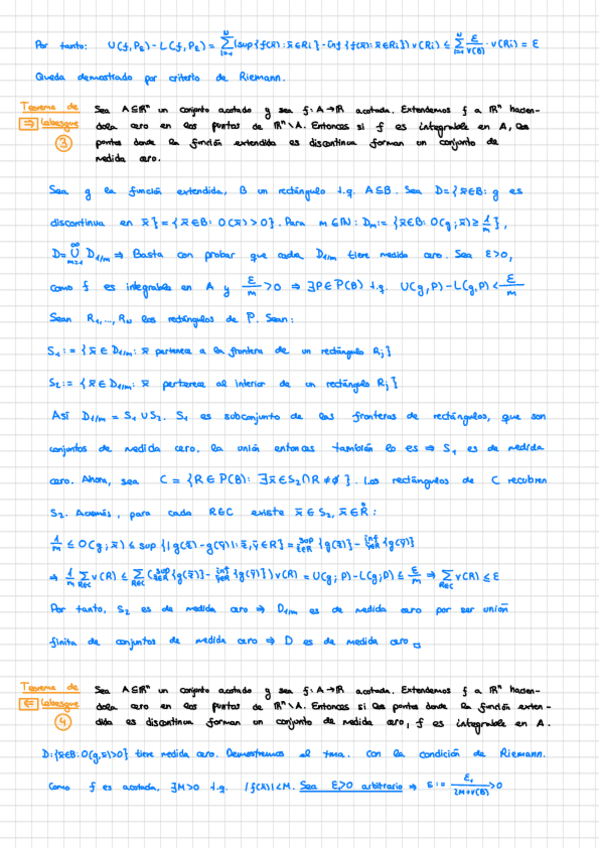 Por tanto: U(f,Pε)-L(f,Pε) = Σ_{i=1}^{N}(sup{f(x̄): x̄∈Ri}-inf{f(x̄): x̄∈Ri}) v(Ri) ≤ Σ_{i=1}^{N} ε/v(B) · v(Ri) = ε
Queda demostrado por criterio de Riemann.
Teorema de Lebesgue ⇒ 3
Sea A⊆ℝⁿ un conjunto acotado y sea f: A→ℝ acotada. Extendemos f a ℝⁿ hacien-
dola cero en los puntos de ℝⁿ\A. Entonces si f es integrable en A, los
puntos donde la función extendida es discontinua forman un conjunto de
medida cero.
Sea g la función extendida, B un rectángulo t.q. A⊆B. Sea D={x̄∈B: g es
discontinua en x̄} = {x̄∈B: O(x̄)>0}. Para m∈ℕ: Dm:= {x̄∈B: O(g;x̄)≥ 1/m},
D=∪_{m=1}^{∞} D1/m ⇒ Basta con probar que cada D1/m tiene medida cero. Sea ε>0,
como f es integrable en A y ε/m >0 ⇒ ∃P∈P(B) t.q. U(g,P)-L(g,P)< ε/m
Sean R1,..., RN los rectángulos de P. Sean:
S1:= {x̄∈D1/m: x̄ pertenece a la frontera de un rectángulo Rj}
S2:= {x̄∈D1/m: x̄ pertenece al interior de un rectángulo Rj}
Así D1/m = S1 ∪ S2. S1 es subconjunto de las fronteras de rectángulos, que son
conjuntos de medida cero, la unión entonces también lo es ⇒ S1 es de medida
cero. Ahora, sea C = {R∈P(B): ∃x̄∈S2∩R ≠ ∅}. Los rectángulos de C recubren
S2. Además, para cada R∈C existe x̄∈S2, x̄∈R̊:
1/m ≤ O(g;x̄) ≤ sup{|g(x̄)-g(ȳ)|: x̄,ȳ∈R} = sup_{x̄∈R}{g(x̄)} - inf_{ȳ∈R}{g(ȳ)}
⇒ 1/m Σ_{R∈C} v(R) ≤ Σ_{R∈C}(sup_{x̄∈R}{g(x̄)} - inf_{ȳ∈R}{g(ȳ)}) v(R) = U(g;P)-L(g;P) ≤ ε/m ⇒ Σ_{R∈C} v(R) ≤ ε
Por tanto, S2 es de medida cero ⇒ D1/m es de medida cero por ser unión
finita de conjuntos de medida cero ⇒ D es de medida cero □
Teorema de Lebesgue ⇐ 4
Sea A⊆ℝⁿ un conjunto acotado y sea f: A→ℝ acotada. Extendemos f a ℝⁿ hacien-
dola cero en los puntos de ℝⁿ\A. Entonces si los puntos donde la función exten-
dida es discontinua forman un conjunto de medida cero, f es integrable en A.
D:{x̄∈B: O(g,x̄)>0} tiene medida cero. Demostremos el tma. con la condición de Riemann.
Como f es acotada, ∃M>0 t.q. |f(x̄)|<M. Sea ε1>0 arbitrario ⇒ ε:= ε1/(2M+v(B)) >0